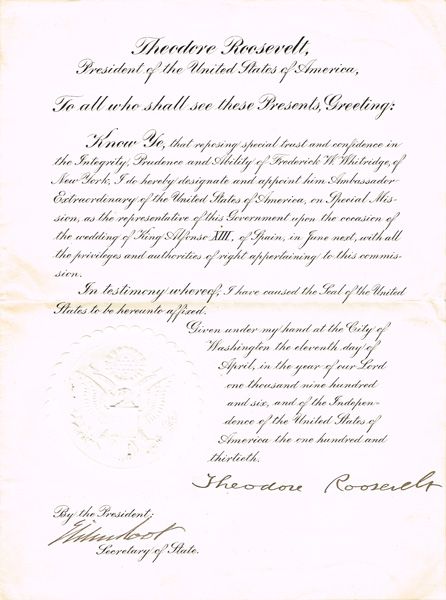 Theodore Roosevelt,
President of the United States of America,
To all who shall see these Presents, Greeting:
Know Ye, that reposing special trust and confidence in
the Integrity, Prudence and Ability of Frederick W. Whitridge, of
New York, I do hereby designate and appoint him Ambassador
Extraordinary of the United States of America, on Special Mis-
sion, as the representative of this Government upon the occasion of
the wedding of King Alfonso XIII, of Spain, in June next, with all
the privileges and authorities of right appertaining to this commis-
sion.
In testimony whereof, I have caused the Seal of the United
States to be hereunto affixed.
Given under my hand at the City of
Washington the eleventh day of
April, in the year of our Lord
one thousand nine hundred
and six, and of the Indepen-
dence of the United States of
America the one hundred and
thirtieth.
Theodore Roosevelt
By the President:
Elihu Root
Secretary of State.